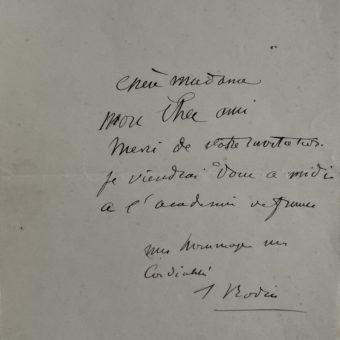 chère madame
mon cher ami
Merci de votre invitation.
je viendrai donc a midi
a l'academie de france
mes hommages mes
Cordialités
A Rodin